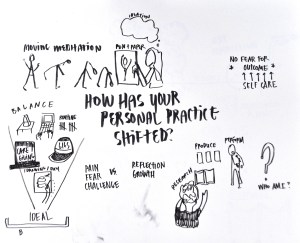 IDEATION
MOVING MEDITATION
PEN & PAPER
NO FEAR FOR
OUTCOME
SELF CARE
BALANCE
ROUTINE
HOW HAS YOUR
PERSONAL PRACTICE
SHIFTED?
CARE
GIVING
IDEAL
PAIN
FEAR
CHALLENGE
VS
REFLECTION
GROWTH
PRODUCE
RESEARCH
PERFORM
WHO AM I?